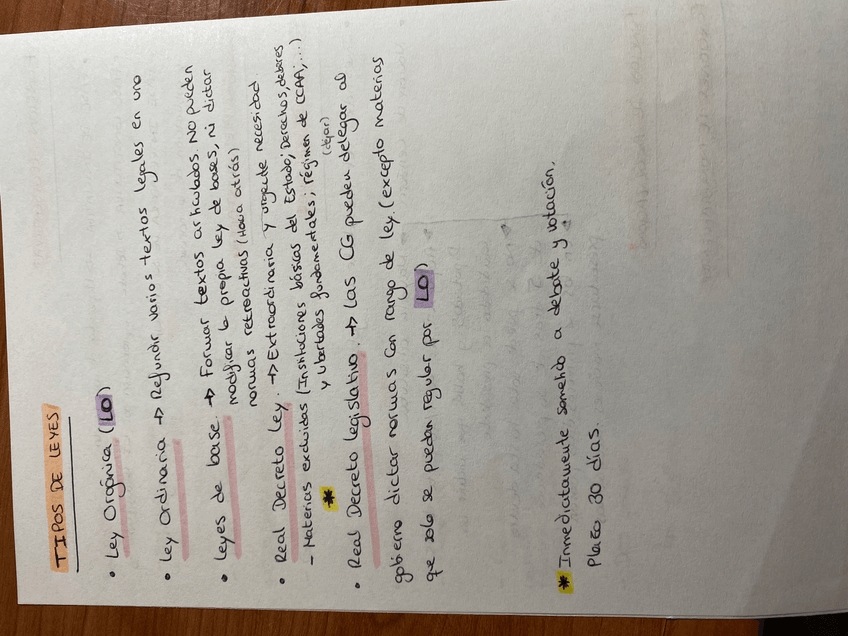 TIPOS DE LEYES
• Ley Orgánica (LO)
• Ley Ordinaria → Refundir varios textos legales en uno
• Leyes de base. → Formar textos articulados. No pueden
modificar la propia ley de bases, ni dictar
normas retroactivas (Hacia atrás)
• Real Decreto Ley. → Extraordinaria y urgente necesidad
- Materias excluidas (Instituciones básicas del Estado; Derechos, deberes
y libertades fundamentales; régimen de CCAA; ...)
* (dejar)
• Real Decreto legislativo. → Las CG pueden delegar al
gobierno dictar normas con rango de ley. (excepto materias
que solo se puedan regular por LO)
* Inmediatamente sometido a debate y votación.
Plazo 30 días.